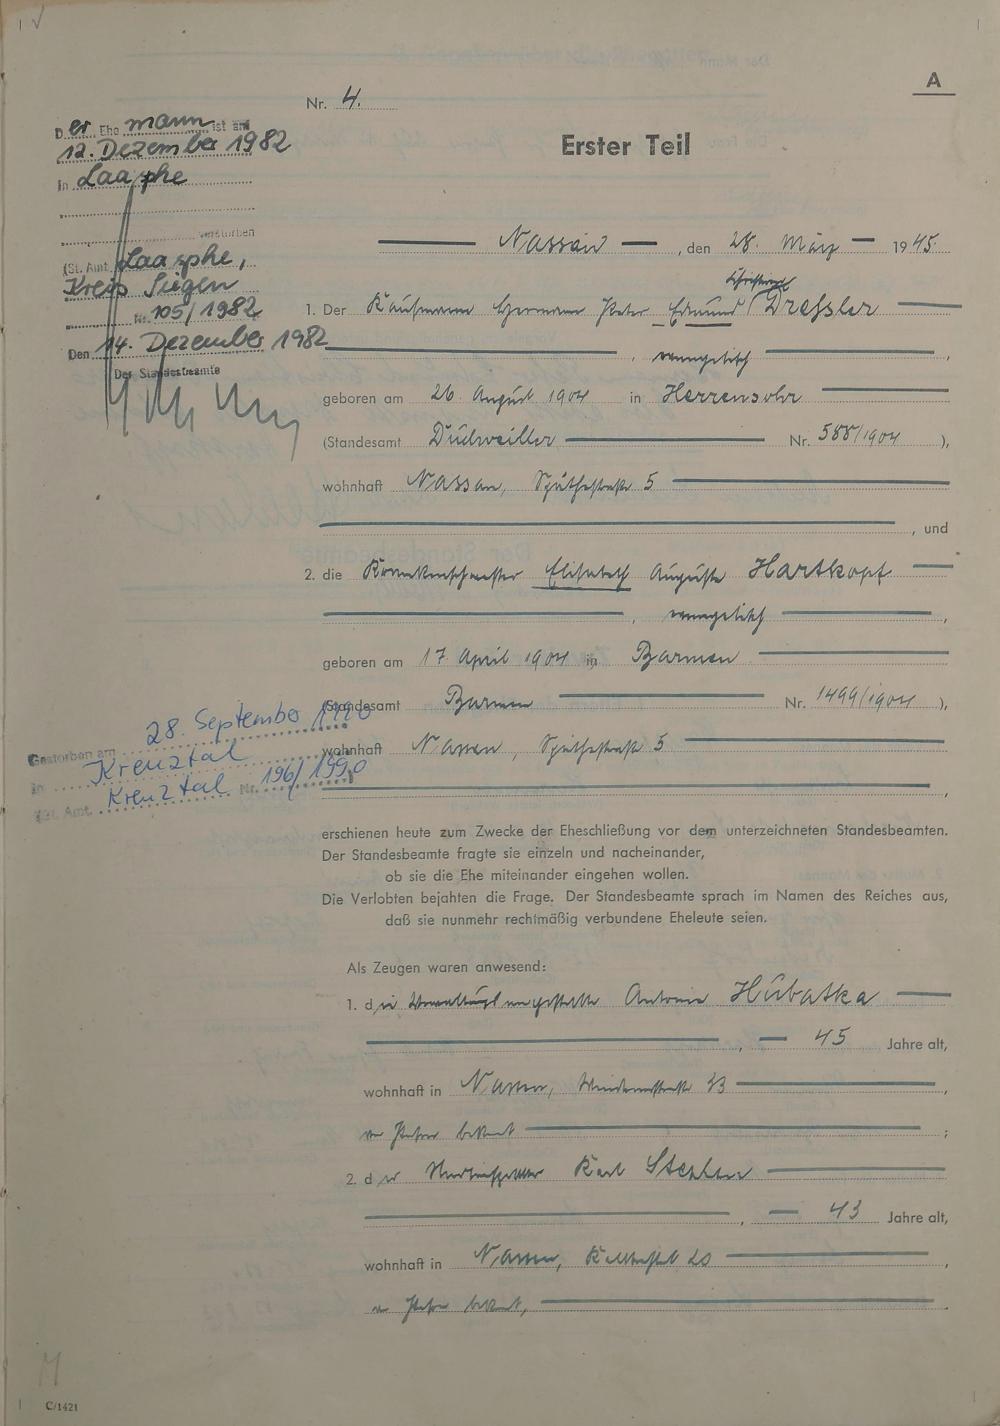 A
Nr. 4.
Erster Teil
Der Ehemann ist am
12. Dezember 1982
in Laasphe
verstorben
(St. Amt Laasphe,
Kreis Siegen
Nr. 105/1982
Den 14. Dezember 1982
Der Standesbeamte
Nassau, den 28. März 1945.
1. Der Kaufmann Hermann Peter Edmund Dressler
, evangelisch,
geboren am 26. August 1904 in Herrensohr
(Standesamt Dudweiler Nr. 588/1904),
wohnhaft Nassau, 5
, und
2. die Krankenschwester Elisabeth Auguste Hartkopf
, evangelisch,
geboren am 17. April 1904 in Barmen
(Standesamt Barmen Nr. 1499/1904),
wohnhaft Nassau, 5
,
Gestorben am 28. September 1990
in Kreuztal
(St. Amt Kreuztal Nr. 196/1990)
erschienen heute zum Zwecke der Eheschließung vor dem unterzeichneten Standesbeamten.
Der Standesbeamte fragte sie einzeln und nacheinander,
ob sie die Ehe miteinander eingehen wollen.
Die Verlobten bejahten die Frage. Der Standesbeamte sprach im Namen des Reiches aus,
daß sie nunmehr rechtmäßig verbundene Eheleute seien.
Als Zeugen waren anwesend:
1. die Verwaltungsangestellte Antonie Hubatka
, 45 Jahre alt,
wohnhaft in Nassau, 23,
der Person bekannt;
2. der Karl
, 43 Jahre alt,
wohnhaft in Nassau, 20,
der Person bekannt,.
C/1421